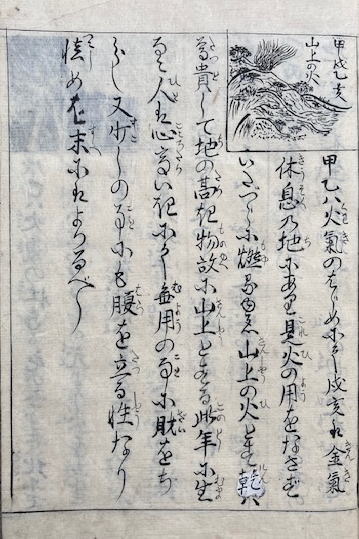 甲戌乙亥
山上の火
甲乙ハ火氣のはじめにして戌亥は金氣
休息乃地にあり是火の用をなさず
いたづらに燃るゆゑ山上の火とす乾ハ
尊貴して地の高き物故に山上とする此年に生
るゝ人は心高 にして無用の事に財をち
らし又少しの事にも腹を立る性なり
慎め 末にはよかるべし